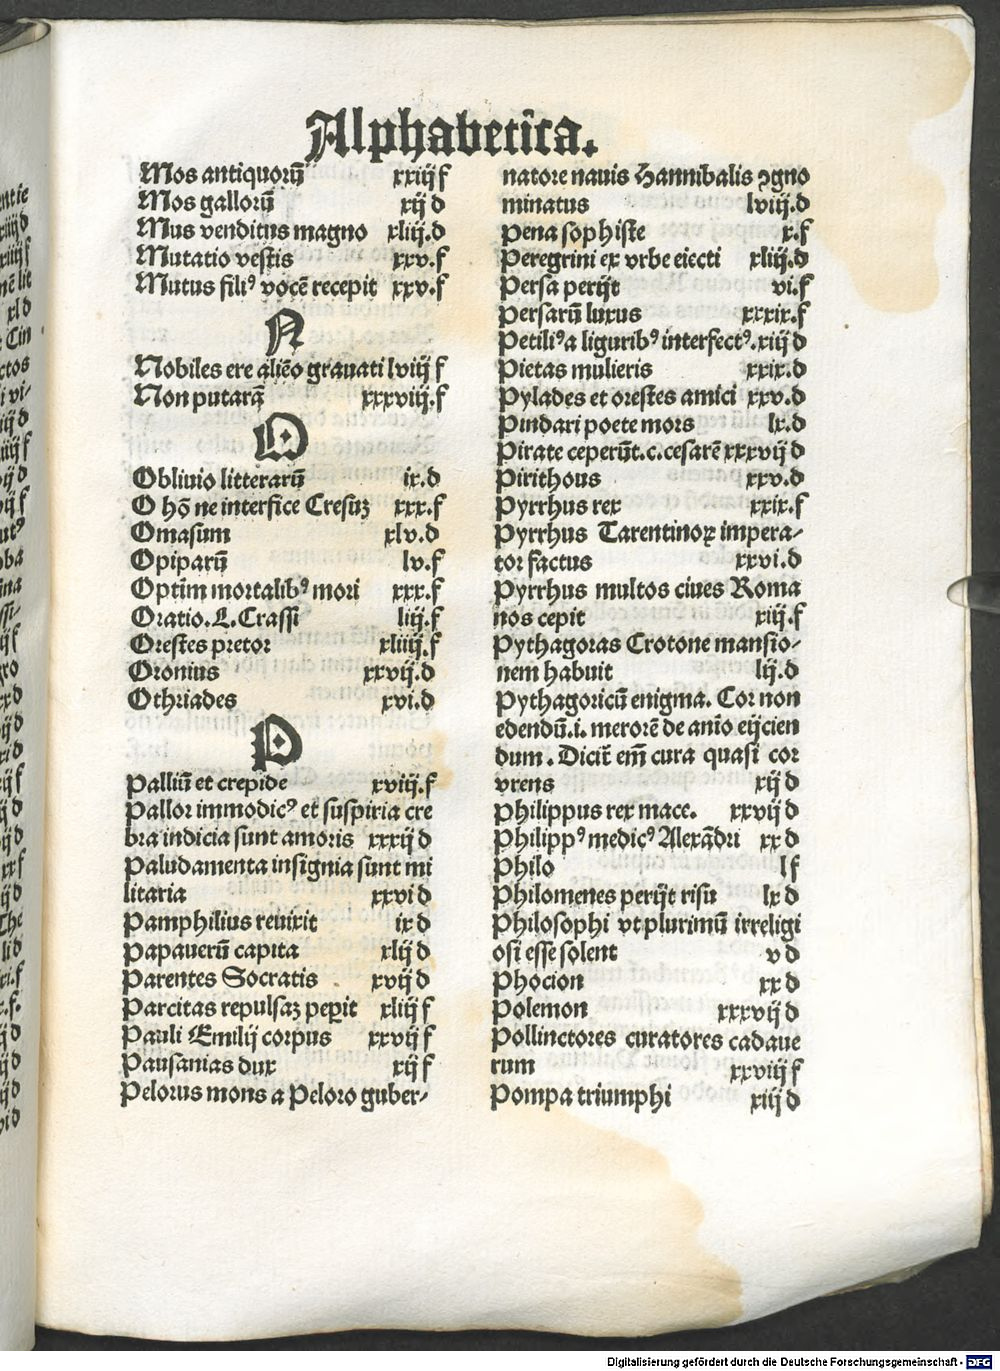 Alphabetica.
Mos antiquorū xxiij f
Mos gallorū xij d
Mus venditus magno xliij.d
Mutatio vestis xxv.f
Mutus filiꝰ vocē recepit xxv.f
N
Nobiles ere aliēo grauati lviij f
Non putarā xxxviij.f
O
Obliuio litterarū ix.d
O hō ne interfice Cresuꝫ xxx.f
Omasum xlv.d
Opiparū lv.f
Optim mortalibꝰ mori xxx.f
Oratio.L.Crassi liij.f
Orestes pretor xliiij.f
Oronius xxvij.d
Othriades xvi.d
P
Palliū et crepide xviij.f
Pallor immodicꝰ et suspiria cre
bra indicia sunt amoris xxxij d
Paludamenta insignia sunt mi
litaria xxvi d
Pamphilius reuixit ix d
Papauerū capita xlij d
Parentes Socratis xvij d
Parcitas repulsaꝫ peꝑit xliij f
Pauli Emilij corpus xxvij f
Pausanias dux xij f
Pelorus mons a Peloro guber-
natore nauis Hannibalis ꝯgno
minatus lviij.d
Pena sophiste x.f
Peregrini ex vrbe eiecti xliij.d
Persa perijt vi.f
Persarū luxus xxxix.f
Petiliꝰa liguribꝰ interfectꝰ.xiij d
Pietas mulieris xxix.d
Pylades et orestes amici xxv.d
Pindari poete mors lx.d
Pirate ceperūt.c.cesarē xxxvij d
Pirithous xxv.d
Pyrrhus rex xxix.f
Pyrrhus Tarentinoꝝ impera-
tor factus xxvi.d
Pyrrhus multos ciues Roma
nos cepit xiij.f
Pythagoras Crotone mansio-
nem habuit lij.d
Pythagoricū enigma. Cor non
edendū.i. merorē de anīo eijcien
dum. Dicit̄ em̄ cura quasi cor
vrens xij d
Philippus rex mace. xxvij d
Philippꝰ medicꝰ Alexādri xx d
Philo l f
Philomenes perijt risu lx d
Philosophi vt plurimū irreligi
osi esse solent v d
Phocion xx d
Polemon xxxvij d
Pollinctores curatores cadaue
rum xxviij f
Pompa triumphi xiij d
Digitalisierung gefördert durch die Deutsche Forschungsgemeinschaft - DFG